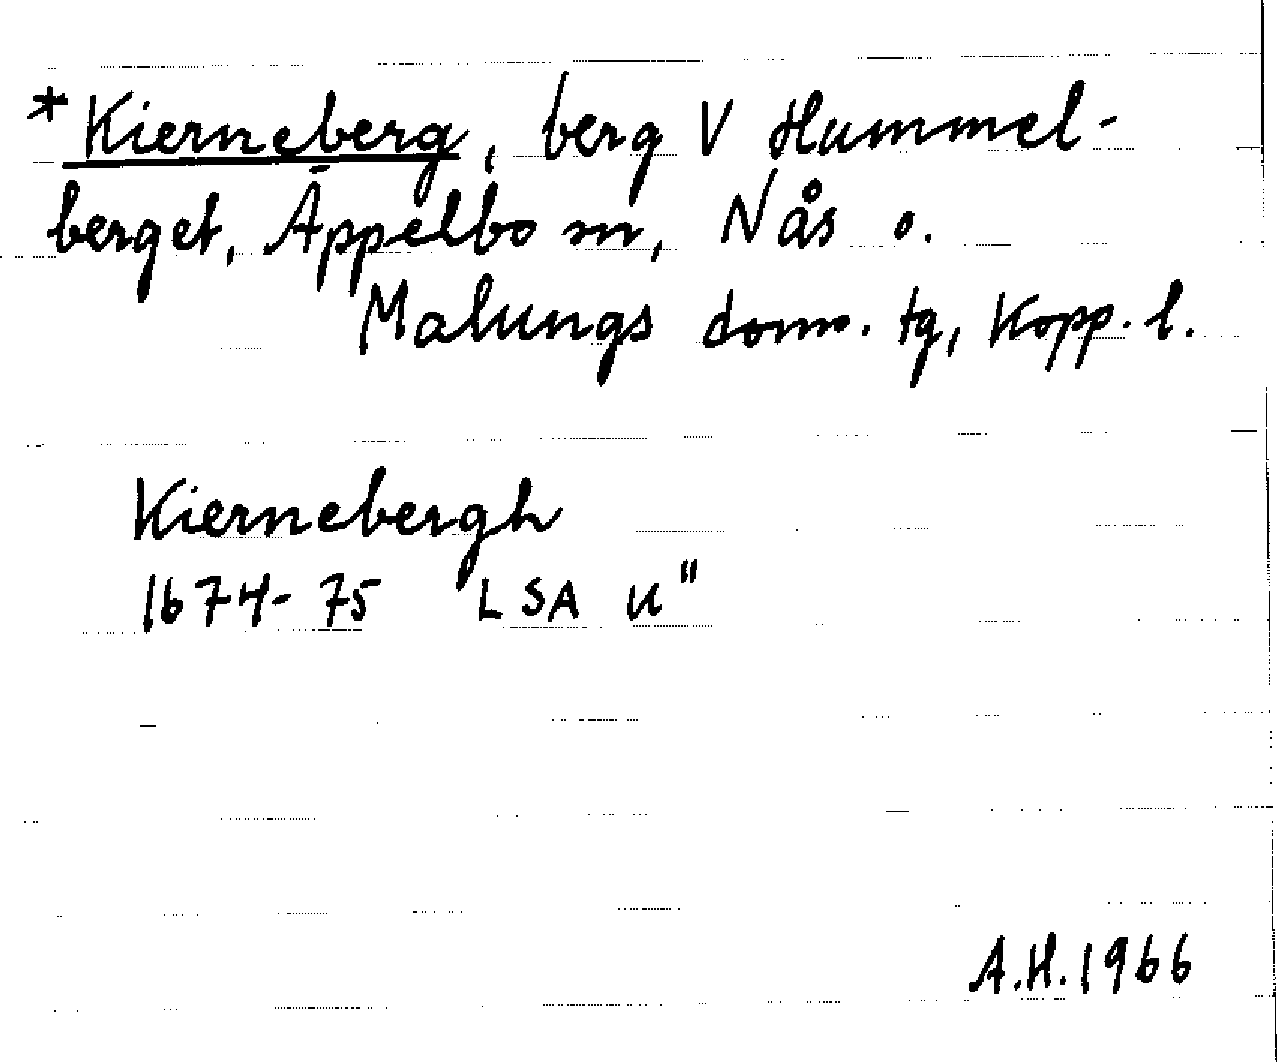 *Kierneberg, berg V Hummel-
berget, Äppelbo sn, Nås o.
Malungs doms. tg, Kopp. l.
Kiernebergh
1674-75 LSA U"
A.H. 1966